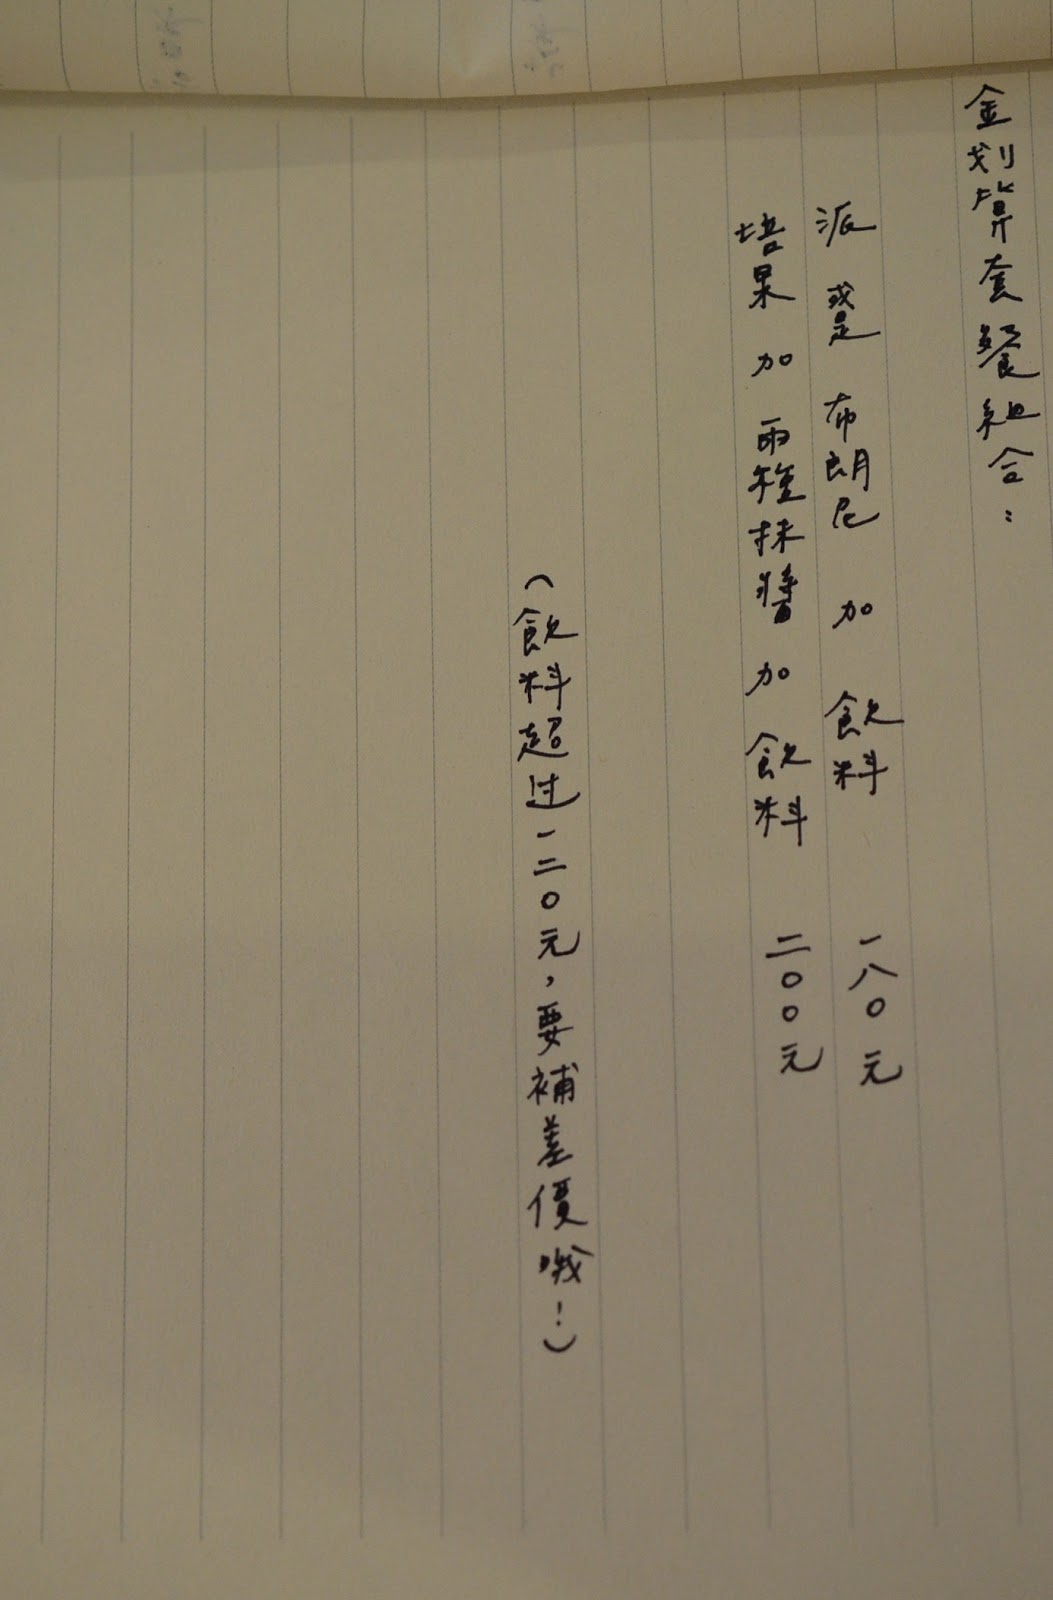 金划算套餐組合：
派 或是 布朗尼 加 飲料 一八〇元
培果 加 兩種抹醬 加 飲料 二〇〇元
（飲料超过一二〇元，要補差價哦！）